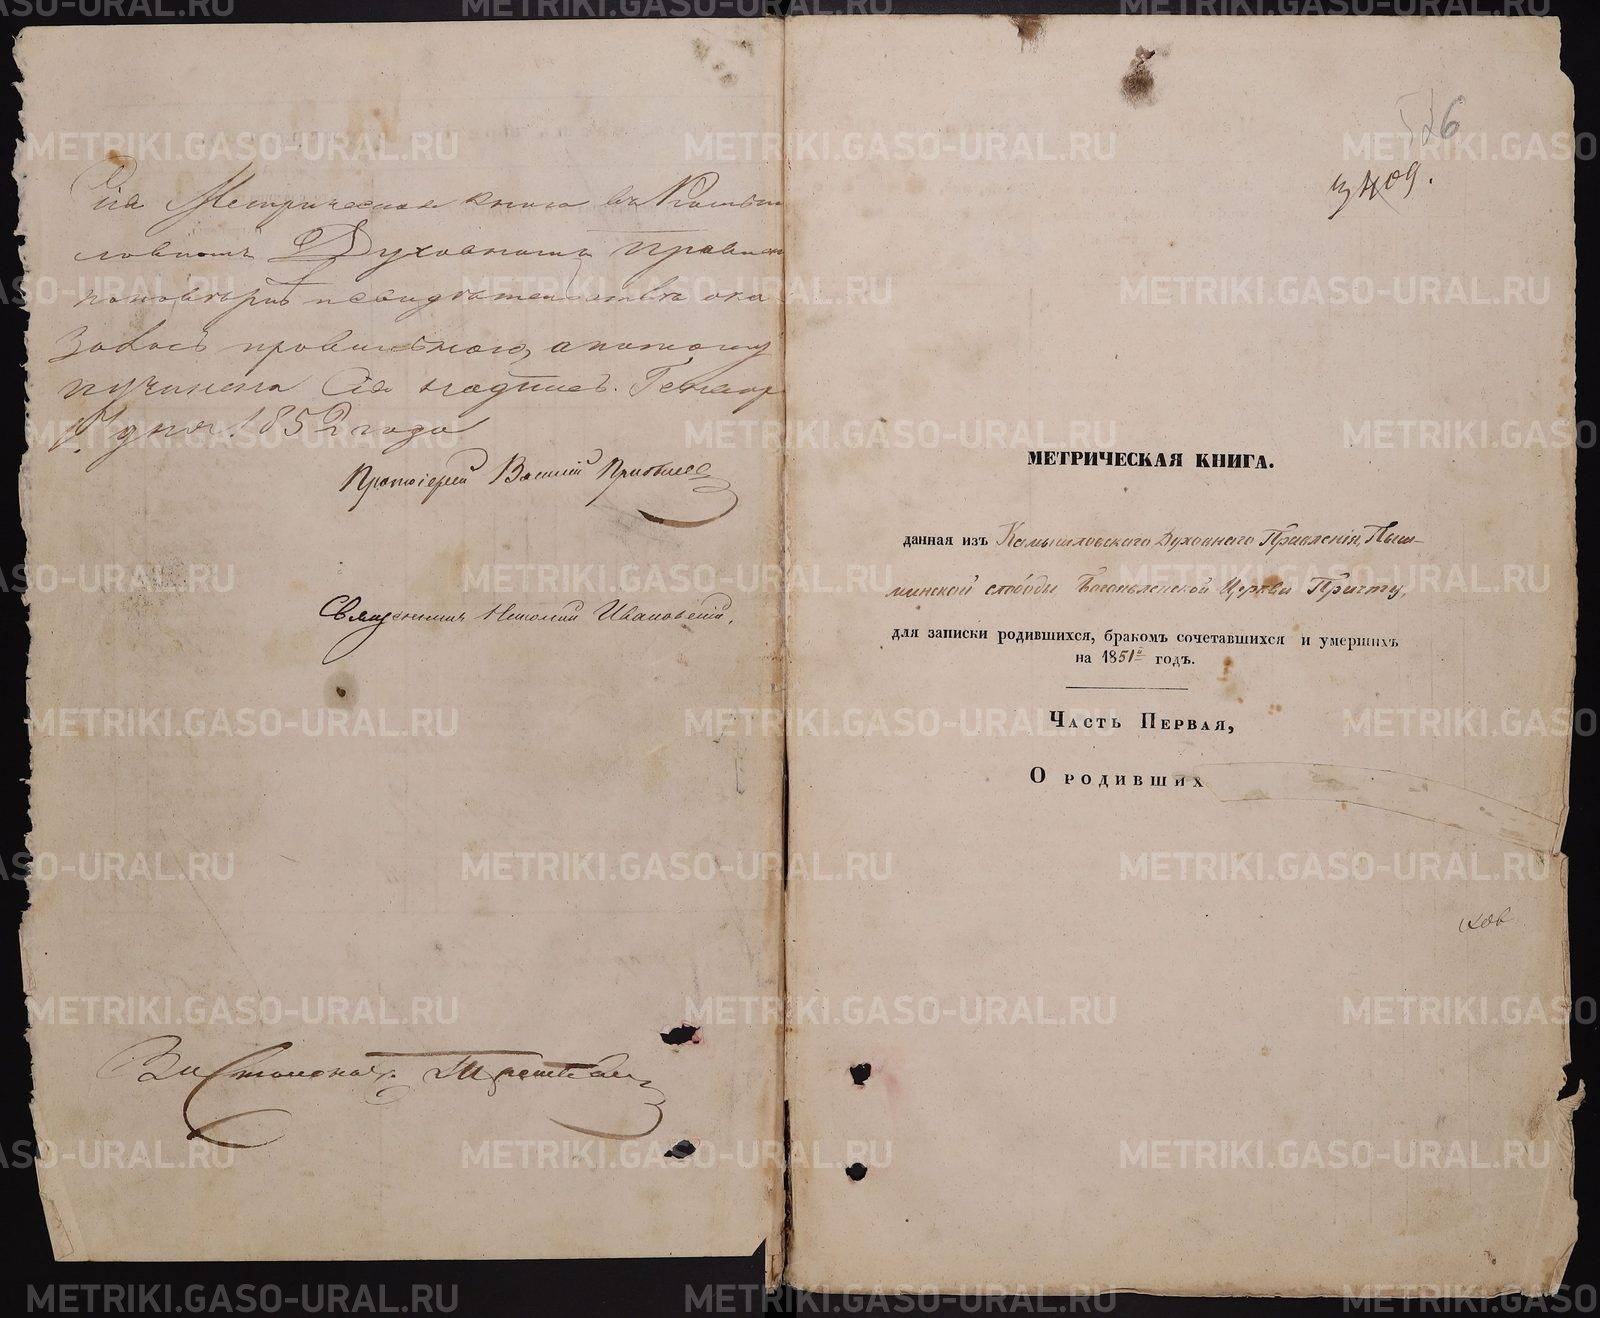 Сія Метрическая книга въ Камыш
ловскомъ Духовномъ Правлен
по повѣркѣ и свидѣтельствѣ ока
залась правильною, а потому
и учинена Сія надпись. Генвар
дня 1852 года
Протоіерей Василій
Священникъ Николай Ивановскій.
526
3409.
МЕТРИЧЕСКАЯ КНИГА.
данная изъ Камышловскаго Духовнаго Правленія, Пыш-
минской слободы Богоявленской Церкви Причту,
для записки родившихся, бракомъ сочетавшихся и умершихъ
на 1851й годъ.
Часть Первая,
О родивших
METRIKI.GASO-URAL.RU